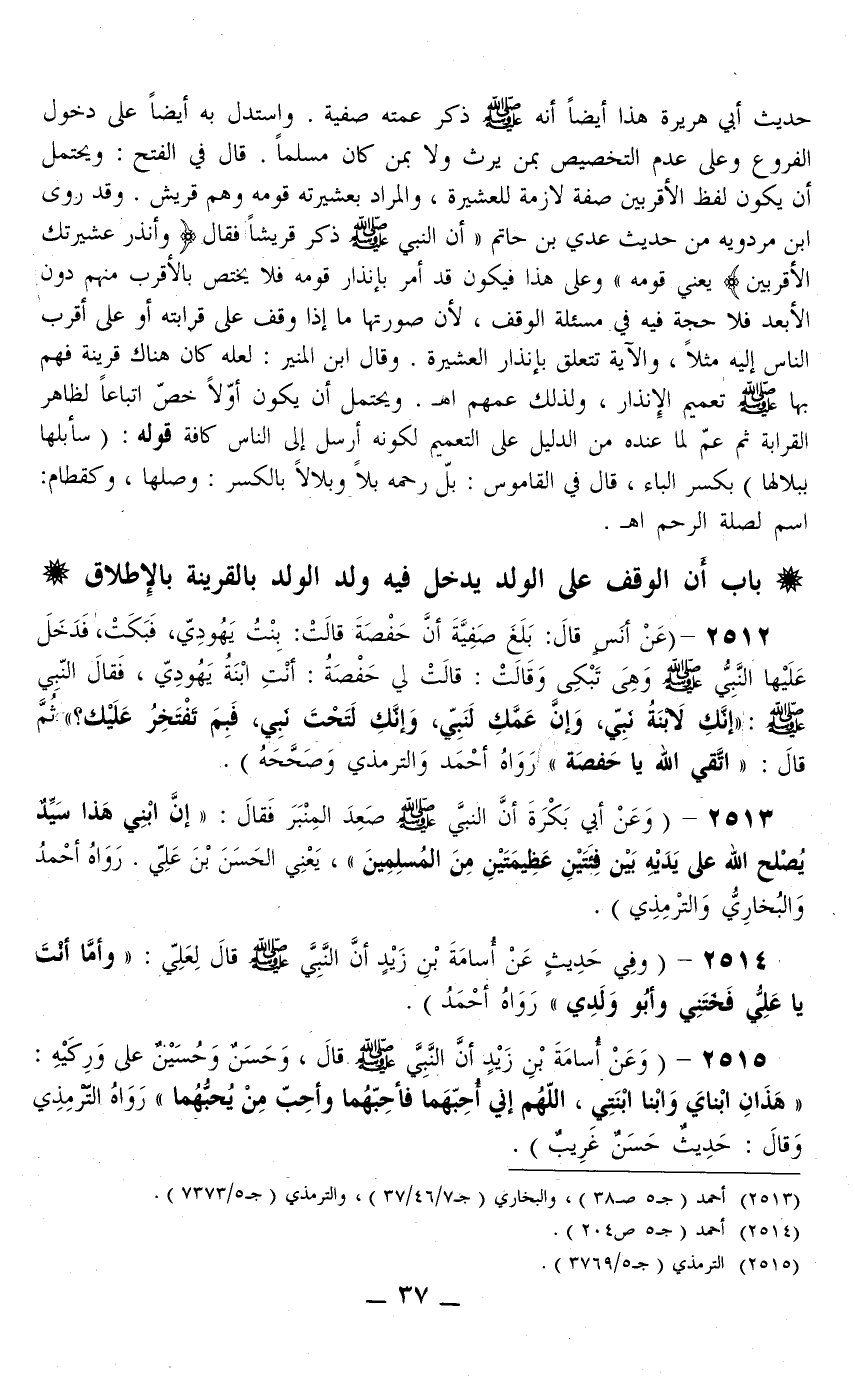 حديث أبي هريرة هذا أيضاً أنه ﷺ ذكر عمته صفية . واستدل به أيضاً على دخول
الفروع وعلى عدم التخصيص بمن يرث ولا بمن كان مسلماً . قال في الفتح : ويحتمل
أن يكون لفظ الأقربين صفة لازمة للعشيرة ، والمراد بعشيرته قومه وهم قريش . وقد روى
ابن مردويه من حديث عدي بن حاتم « أن النبي ﷺ ذكر قريشاً فقال ﴿ وأنذر عشيرتك
الأقربين ﴾ يعني قومه » وعلى هذا فيكون قد أمر بإنذار قومه فلا يختص بالأقرب منهم دون
الأبعد فلا حجة فيه في مسئلة الوقف ، لأن صورتها ما إذا وقف على قرابته أو على أقرب
الناس إليه مثلاً ، والآية تتعلق بإنذار العشيرة . وقال ابن المنير : لعله كان هناك قرينة فهم
بها ﷺ تعميم الإنذار ، ولذلك عمهم اهـ . ويحتمل أن يكون أوّلاً خصّ اتباعاً لظاهر
القرابة ثم عمّ لما عنده من الدليل على التعميم لكونه أرسل إلى الناس كافة قوله : ( سأبلها
ببلالها ) بكسر الباء ، قال في القاموس : بلّ رحمه بلاً وبلالاً بالكسر : وصلها ، وكقطام:
اسم لصلة الرحم اهـ .
❋ باب أن الوقف على الولد يدخل فيه ولد الولد بالقرينة بالإطلاق ❋
٢٥١٢ -(عَنْ أنَسٍ قالَ: بَلَغَ صَفِيَّةَ أنَّ حَفْصَةَ قالَتْ: بِنْتُ يَهُودِيّ، فَبَكَتْ، فَدَخَلَ
عَلَيْها النَّبيُّ ﷺ وَهِىَ تَبْكِى وَقَالَتْ : قالَتْ لي حَفْصَةُ : أنْتِ ابْنَةُ يَهُودِيّ ، فَقالَ النّبي
ﷺ : «إنَّكِ لَابْنَةُ نَبيّ، وَإنَّ عَمَّكِ لَنَبيّ، وَإنَّكِ لَتَحْتَ نَبي، فَبِمَ تَفْتَخِرُ عَلَيْك؟» ثُمَّ
قالَ : « اتَّقي الله يا حَفصَة » رَوَاهُ أحْمَد وَالترمذي وَصَحَّحَهُ ) .
٢٥١٣ - ( وَعَنْ أبي بَكْرَةَ أنَّ النبيَّ ﷺ صَعِدَ المِنْبَرَ فَقالَ : « إنَّ ابْنِي هَذا سَيِّدٌ
يُصْلح الله على يَدَيْهِ بَيْن فِئَتَيْنِ عَظِيمَتَيْنِ مِنَ المُسلِمِينَ » ، يَعْنِي الحَسَنَ بْنَ عَلِيّ . رَوَاهُ أحْمدُ
وَالبُخاريُّ وَالترْمِذِي ) .
٢٥١٤ - ( وفِي حَدِيثٍ عَنْ أُسامَةَ بْنِ زَيْدٍ أنَّ النَّبيَّ ﷺ قالَ لِعَلِيّ : « وأمَّا أنْتَ
يا عَلِيُّ فَخَتَنِي وأبُو وَلَدِي » رَوَاهُ أحْمَدُ ) .
٢٥١٥ - ( وَعَنْ أُسامَةَ بْنِ زَيْدٍ أنَّ النَّبيَّ ﷺ قال ، وَحَسَنٌ وَحُسَيْنٌ على وَرِكَيْهِ :
« هَذَانِ ابْنايَ وَابْنا ابْنَتِي ، اللّهُم إني أُحِبّهَما فأحِبّهُما وأحِبّ مِنْ يُحبُّهُما » رَوَاهُ التّرْمِذِي
وَقالَ : حَدِيثٌ حَسَنٌ غَرِيبٌ ) .
(٢٥١٣) أحمد ( جـ٥ صـ٣٨ ) ، والبخاري ( جـ٣٧/٤٦/٧ ) ، والترمذي ( جـ٧٣٧٣/٥ ) .
(٢٥١٤) أحمد ( جـ٥ ص٢٠٤ ) .
(٢٥١٥) الترمذي ( جـ٣٧٦٩/٥ ) .
ـ ٣٧ ـ